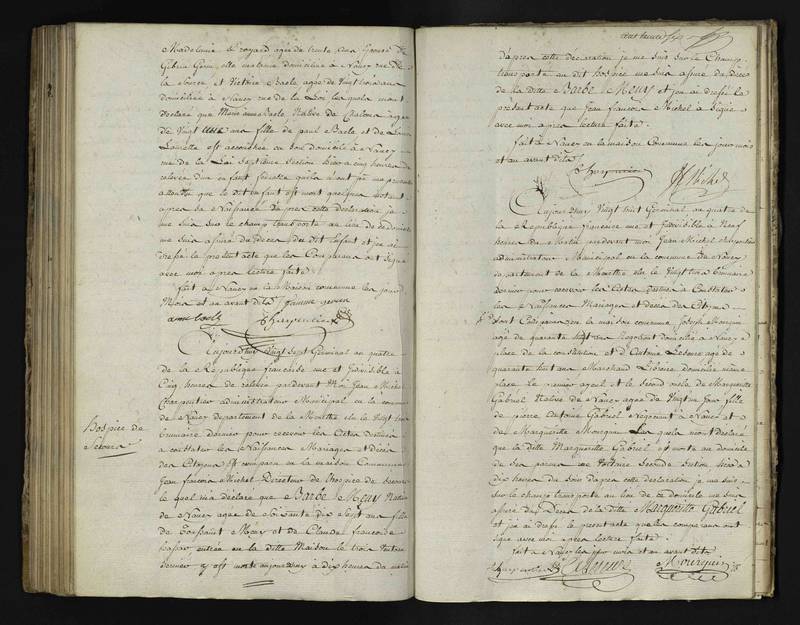 agée de trente ans
Gibrin Gervin, domiciliée à Nancy rue de
la Source et Victoire Baele agée de vingt trois ans
domiciliée à Nancy rue de la Loi lesquels m'ont
déclaré que Marie Anne Baele, Native de Chalons agée
de Vingt ans fille de paul Baele et de
Laurette est accouchée en son domicile à Nancy
rue de la Loi Septieme Section hier à cinq heures de
relevée d'un enfant femelle qu'ils m'ont
attendu que le dit enfant est mort quelques instants
apres sa Naissance D'apres cette déclaration je
me suis sur le champ transporté au lieu de ce domicile
me suis assuré du Deces du dit Enfant et j'ai
dressé le present acte que les Comparans ont signé
avec moi apres lecture faite
fait à Nancy en la Maison commune les jour
Mois et an avant dits femme gervin
anne baele Charpentier
Aujourd'huy Vingt Sept Germinal an quatre
de la République francoise une et Indivisible à
Cinq heures de relevée pardevant Moi Jean Michel
Charpentier administrateur Municipal en la commune
de Nancy departement de la Meurthe élu le Vingt trois
brumaire dernier pour recevoir les Actes destinés
a constater les Naissances Mariages et Deces
des Citoyens est comparu en la maison Commune
Hospice de
Secours
Jean francois Michel Directeur de l'hospice de Secours
le quel m'a declaré que Barbe Meny Native
de Nancy agée de Soixante dix Sept ans fille
de Toussaint Meny et de Claude francoise
entrée en la ditte Maison le trois Ventose
dernier y est morte aujourd'huy à dix heures du matin
D'apres cette déclaration je me suis sur le Champ
transporté au dit hospice me suis assuré du Deces
de la ditte Barbe Meny et j'ai dressé le
présent acte que Jean francois Michel à Signé
avec moi apres lecture faite
fait à Nancy en la maison Commune les jour mois
et an avant dits
Charpentier JF Michel
Aujourd'huy Vingt huit Germinal an quatre de
la République francoise une et Indivisible à Neuf
heures du Matin pardevant moi Jean Michel Charpentier
administrateur Municipal en la commune de Nancy
departement de la Meurthe élu le Vingt trois brumaire
dernier pour recevoir les Actes Destinés à Constater
les Naissances Mariages et Deces des Citoyens
sont Comparus en la maison commune Joseph Mourquin
agé de quarante huit ans Negotiant domicilié à Nancy
place de la constitution et D'Antoine Lesure agé de
quarante huit ans Marchand Libraire domicilié même
place Le premier ayeul et le second oncle de Marguerite
Gabriel Native de Nancy agée de Vingt un Jours fille
de pierre Antoine Gabriel Négociant à Nancy et
de Marguerite Mourquin Les quels m'ont declaré
que la ditte Marguerite Gabriel est morte au domicile
de ses parens Seconde Section hier à
dix heures du soir D'apres cette declaration je me suis
sur le champ transporté au lieu de ce domicile me suis
assuré du Deces de la ditte Marguerite Gabriel
et j'ai dressé le present acte que les comparans ont
signé avec moi apres lecture faite
fait à Nancy les jour mois et an avant dits
Charpentier Lesure Mourquin